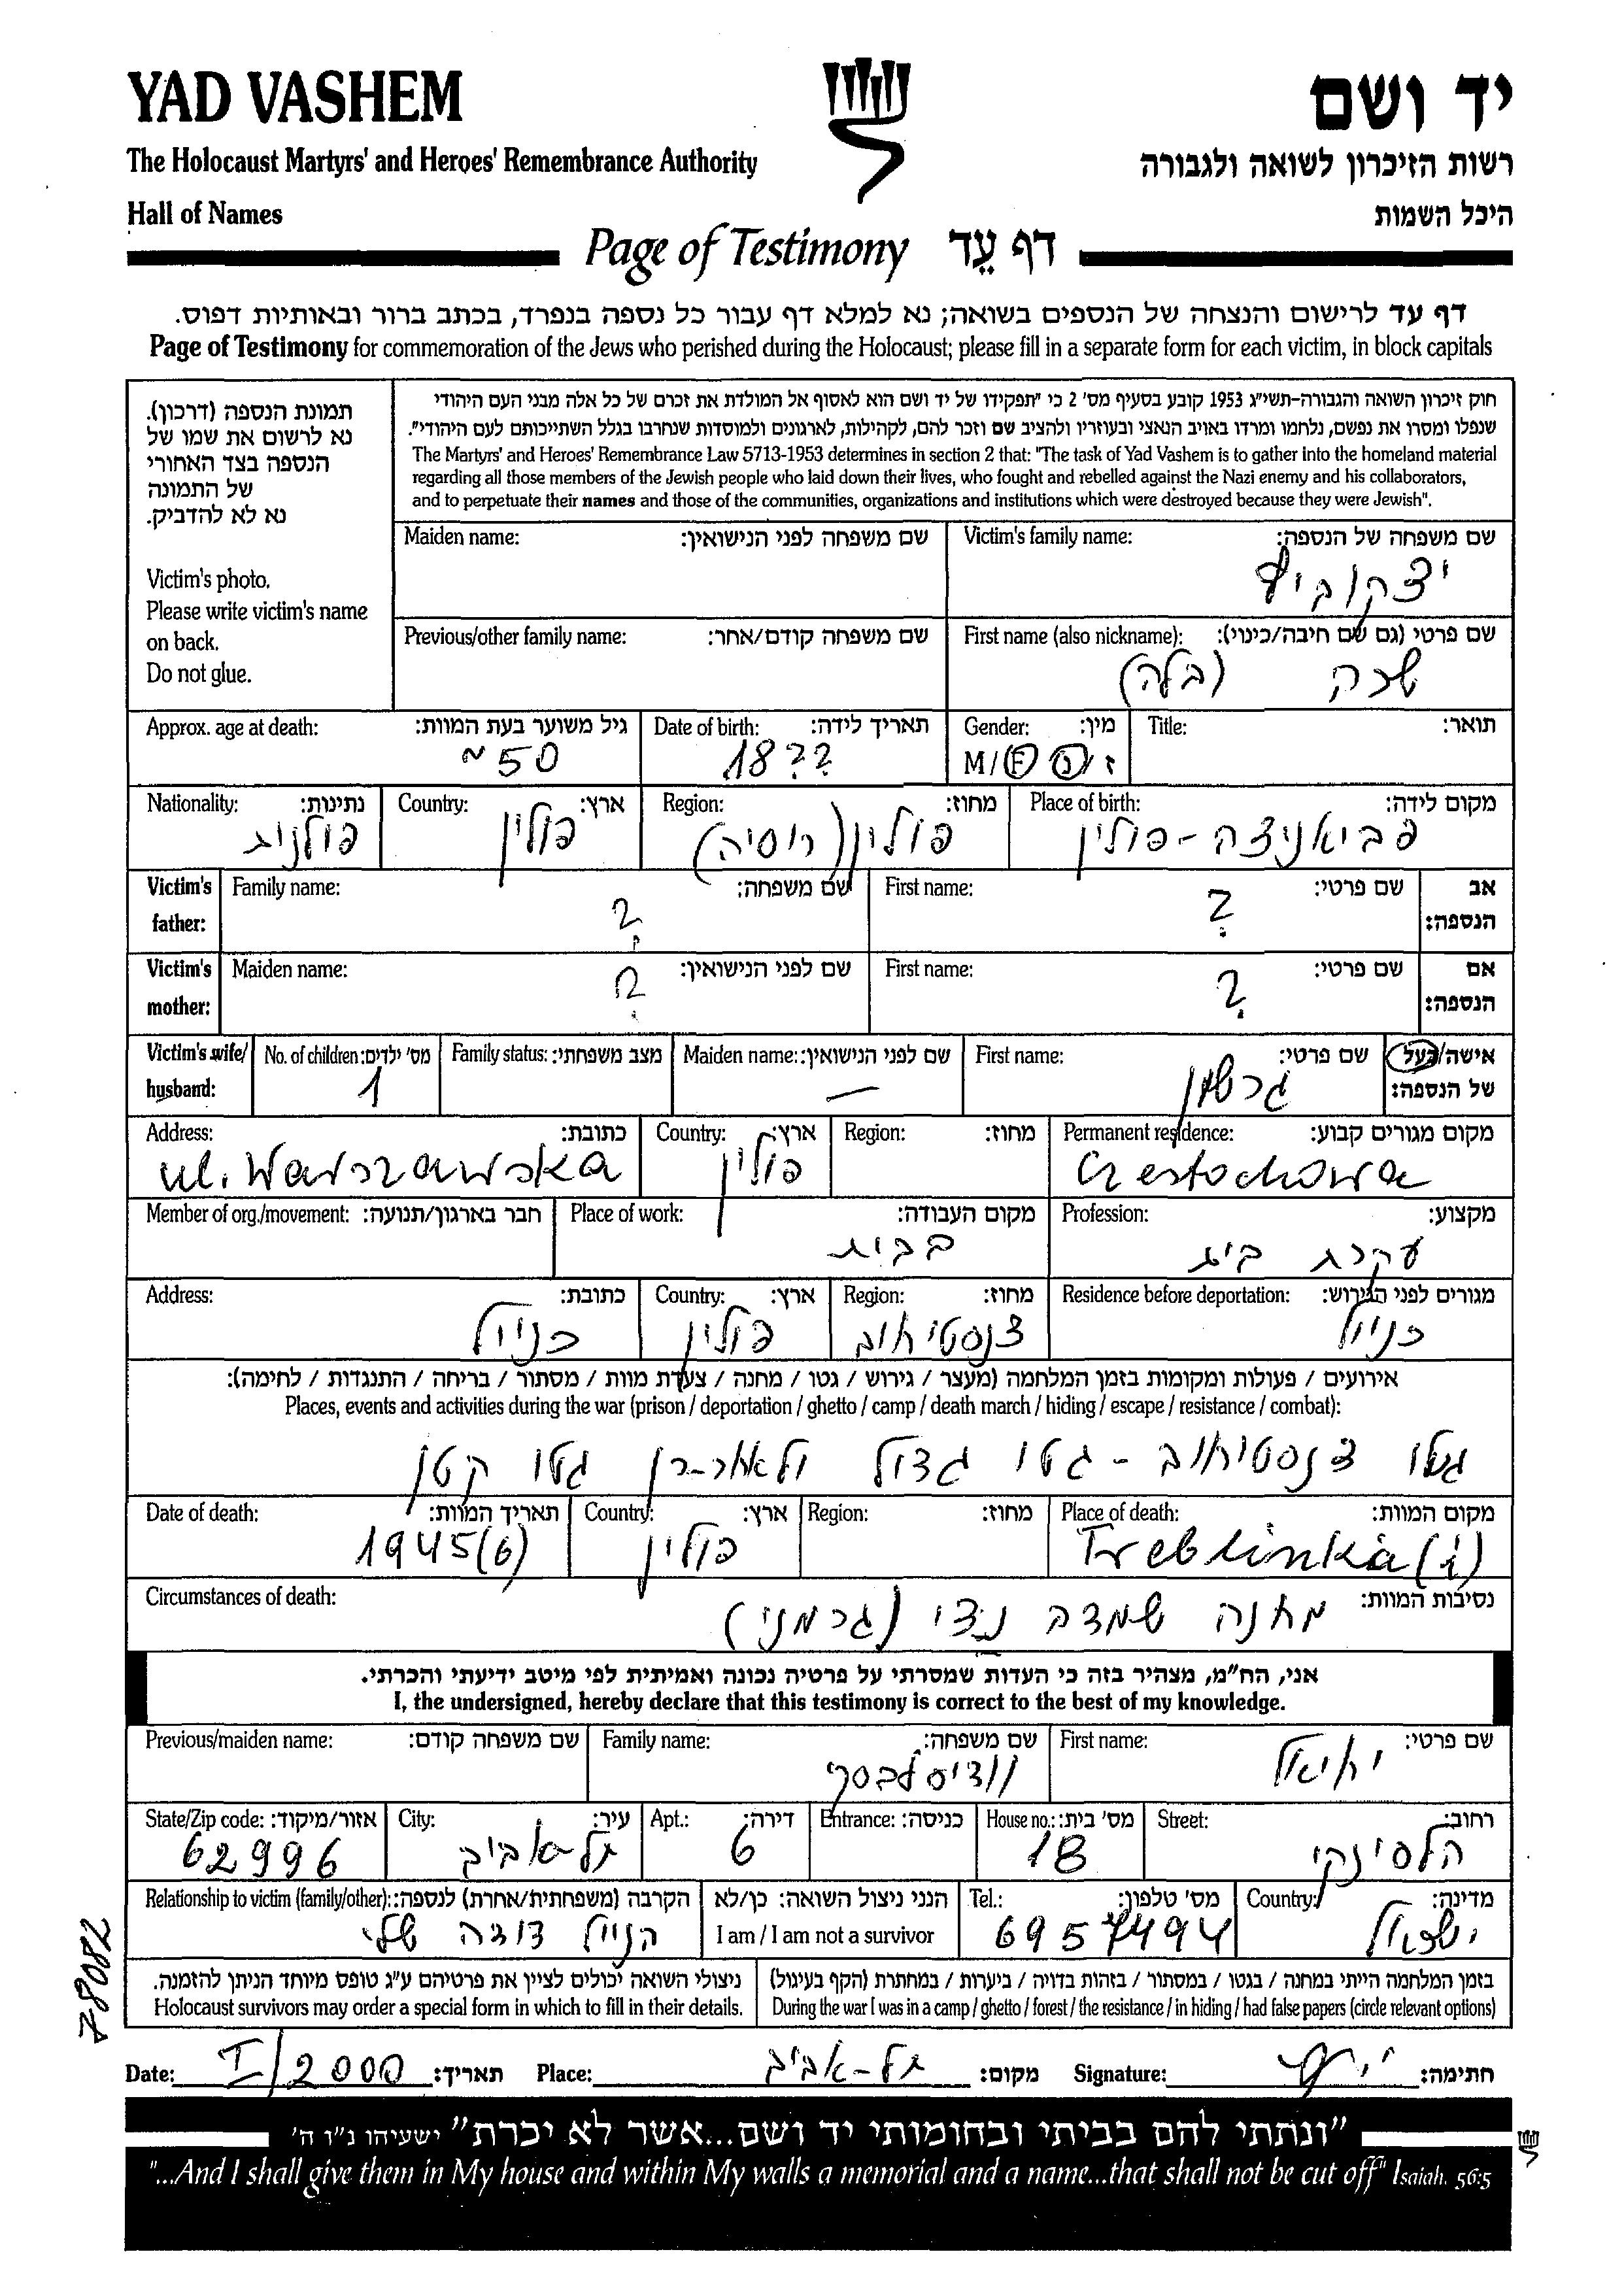 YAD VASHEM
יד ושם
The Holocaust Martyrs' and Heroes' Remembrance Authority
רשות הזיכרון לשואה ולגבורה
Hall of Names
היכל השמות
Page of Testimony דף עֵד
דף עד לרישום והנצחה של הנספים בשואה; נא למלא דף עבור כל נספה בנפרד, בכתב ברור ובאותיות דפוס.
Page of Testimony for commemoration of the Jews who perished during the Holocaust; please fill in a separate form for each victim, in block capitals
תמונת הנספה (דרכון).
נא לרשום את שמו של
הנספה בצד האחורי
של התמונה
נא לא להדביק.
Victim's photo.
Please write victim's name
on back.
Do not glue.
חוק זיכרון השואה והגבורה-תשי״ג 1953 קובע בסעיף מס׳ 2 כי ״תפקידו של יד ושם הוא לאסוף אל המולדת את זכרם של כל אלה מבני העם היהודי
שנפלו ומסרו את נפשם, נלחמו ומרדו באויב הנאצי ובעוזריו ולהציב שם וזכר להם, לקהילות, לארגונים ולמוסדות שנחרבו בגלל השתייכותם לעם היהודי״.
The Martyrs' and Heroes' Remembrance Law 5713-1953 determines in section 2 that: "The task of Yad Vashem is to gather into the homeland material
regarding all those members of the Jewish people who laid down their lives, who fought and rebelled against the Nazi enemy and his collaborators,
and to perpetuate their names and those of the communities, organizations and institutions which were destroyed because they were Jewish".
Victim's family name: שם משפחה של הנספה:
יצקוביץ
Maiden name: שם משפחה לפני הנישואין:
First name (also nickname): שם פרטי (גם שם חיבה/כינוי):
(בלה)
Previous/other family name: שם משפחה קודם/אחר:
Title: תואר:
Gender: מין:
M/F נ/ז
Date of birth: תאריך לידה:
18??
Approx. age at death: גיל משוער בעת המוות:
~50
Place of birth: מקום לידה:
פביאניצה - פולין
Region: מחוז:
פולין (רוסיה)
Country: ארץ:
פולין
Nationality: נתינות:
פולנית
Victim's father: אב הנספה:
First name: שם פרטי:
?
Family name: שם משפחה:
?
Victim's mother: אם הנספה:
First name: שם פרטי:
?
Maiden name: שם לפני הנישואין:
?
Victim's wife/ husband: אישה/בעל של הנספה:
First name: שם פרטי:
גרשון
Maiden name: שם לפני הנישואין:
—
Family status: מצב משפחתי:
No. of children: מס׳ ילדים:
1
Permanent residence: מקום מגורים קבוע:
Czestochowa
Region: מחוז:
Country: ארץ:
פולין
Address: כתובת:
ul. Warszawska
Profession: מקצוע:
עקרת בית
Place of work: מקום העבודה:
בבית
Member of org./movement: חבר בארגון/תנועה:
Residence before deportation: מגורים לפני הגירוש:
כנ״ל
Region: מחוז:
צנסטיחוב
Country: ארץ:
פולין
Address: כתובת:
כנ״ל
אירועים / פעולות ומקומות בזמן המלחמה (מעצר / גירוש / גטו / מחנה / צעדת מוות / מסתור / בריחה / התנגדות / לחימה):
Places, events and activities during the war (prison / deportation / ghetto / camp / death march / hiding / escape / resistance / combat):
גטו צנסטיחוב - גטו גדול ולאחר-כן גטו קטן
Place of death: מקום המוות:
Treblinka (i)
Region: מחוז:
Country: ארץ:
פולין
Date of death: תאריך המוות:
1945(6)
Circumstances of death: נסיבות המוות:
מחנה נצי (גרמני)
אני, הח״מ, מצהיר בזה כי העדות שמסרתי על פרטיה נכונה ואמיתית לפי מיטב ידיעתי והכרתי.
I, the undersigned, hereby declare that this testimony is correct to the best of my knowledge.
First name: שם פרטי:
יחיאל
Family name: שם משפחה:
וודיסלבסקי
Previous/maiden name: שם משפחה קודם:
Street: רחוב:
הלסינקי
House no.: מס׳ בית:
18
Entrance: כניסה:
Apt.: דירה:
6
City: עיר:
תל-אביב
State/Zip code: אזור/מיקוד:
62996
Country: מדינה:
ישראל
Tel.: מס׳ טלפון:
6957494
הנני ניצול השואה: כן/לא
I am / I am not a survivor
Relationship to victim (family/other): הקרבה (משפחתית/אחרת) לנספה:
הנ״ל דודה שלי
בזמן המלחמה הייתי במחנה / בגטו / במסתור / בזהות בדויה / ביערות / במחתרת (הקף בעיגול)
During the war I was in a camp / ghetto / forest / the resistance / in hiding / had false papers (circle relevant options)
ניצולי השואה יכולים לציין את פרטיהם ע״ג טופס מיוחד הניתן להזמנה.
Holocaust survivors may order a special form in which to fill in their details.
78082
Date: I/2000 תאריך: Place: תל-אביב מקום: Signature: חתימה:
״ונתתי להם בביתי ובחומותי יד ושם...אשר לא יכרת״ ישעיהו נ״ו ה׳
"...And I shall give them in My house and within My walls a memorial and a name...that shall not be cut off" Isaiah. 56:5